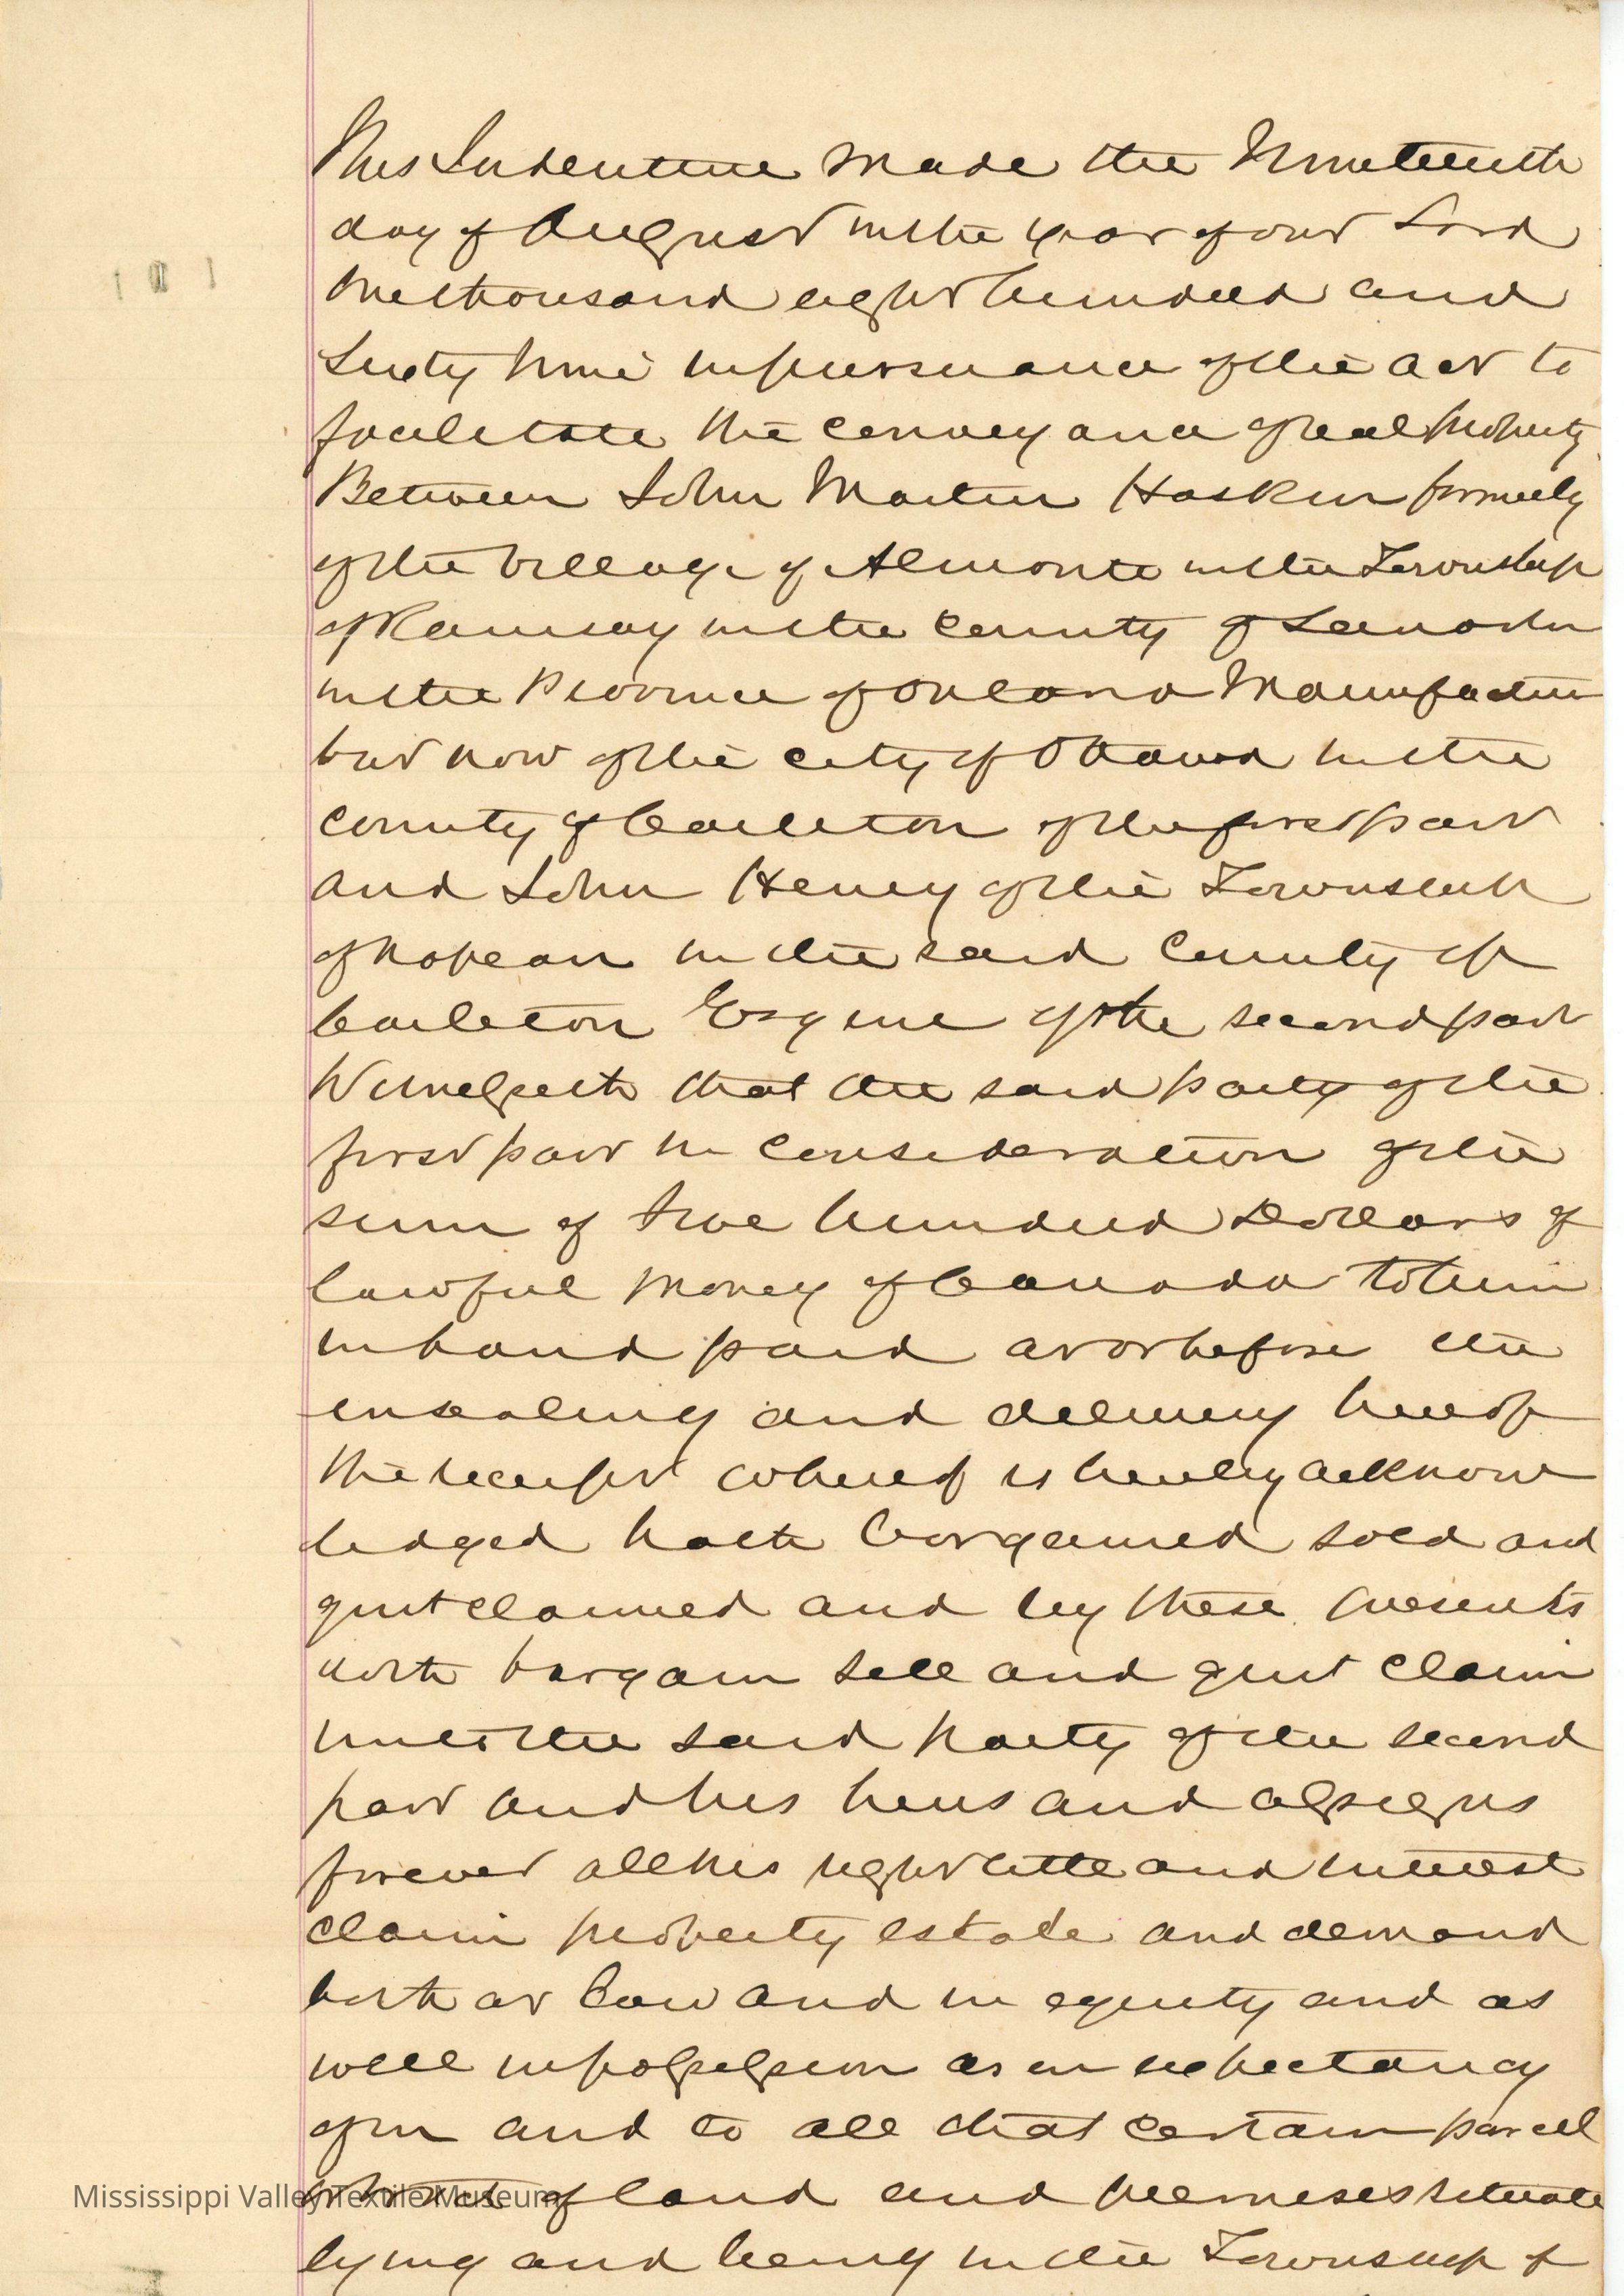 This Indenture made the Nineteenth
day of August in the year of our Lord
One thousand eight hundred and
Sixty Nine in pursuance of the act to
facilitate the conveyance of real Property
Between John Martin Haskin formerly
of the Village of Almonte in the Township
of Ramsay in the County of Lanark
in the Province of Manufacturer
but now of the city of Ottawa in the
County of Carleton of the first part
and John Henry of the Township
of Nopean in the said County of
Carleton Esquire of the second part
Witnesseth that the said party of the
first part in consideration of the
sum of two hundred Dollars of
lawful money of Canada to him
in hand paid at or before the
ensealing and delivery hereof
the receipt whereof is hereby acknow
ledged hath bargained sold and
quit claimed and by these presents
doth bargain sell and quit claim
unto the said party of the second
part and his heirs and assigns
forever all his right title and interest
claim property estate and demand
both at law and in equity and as
well in possession as in expectancy
of in and to all that certain parcel
or tract of land and premises situate
lying and being in the Township of
Mississippi Valley Textile Museum